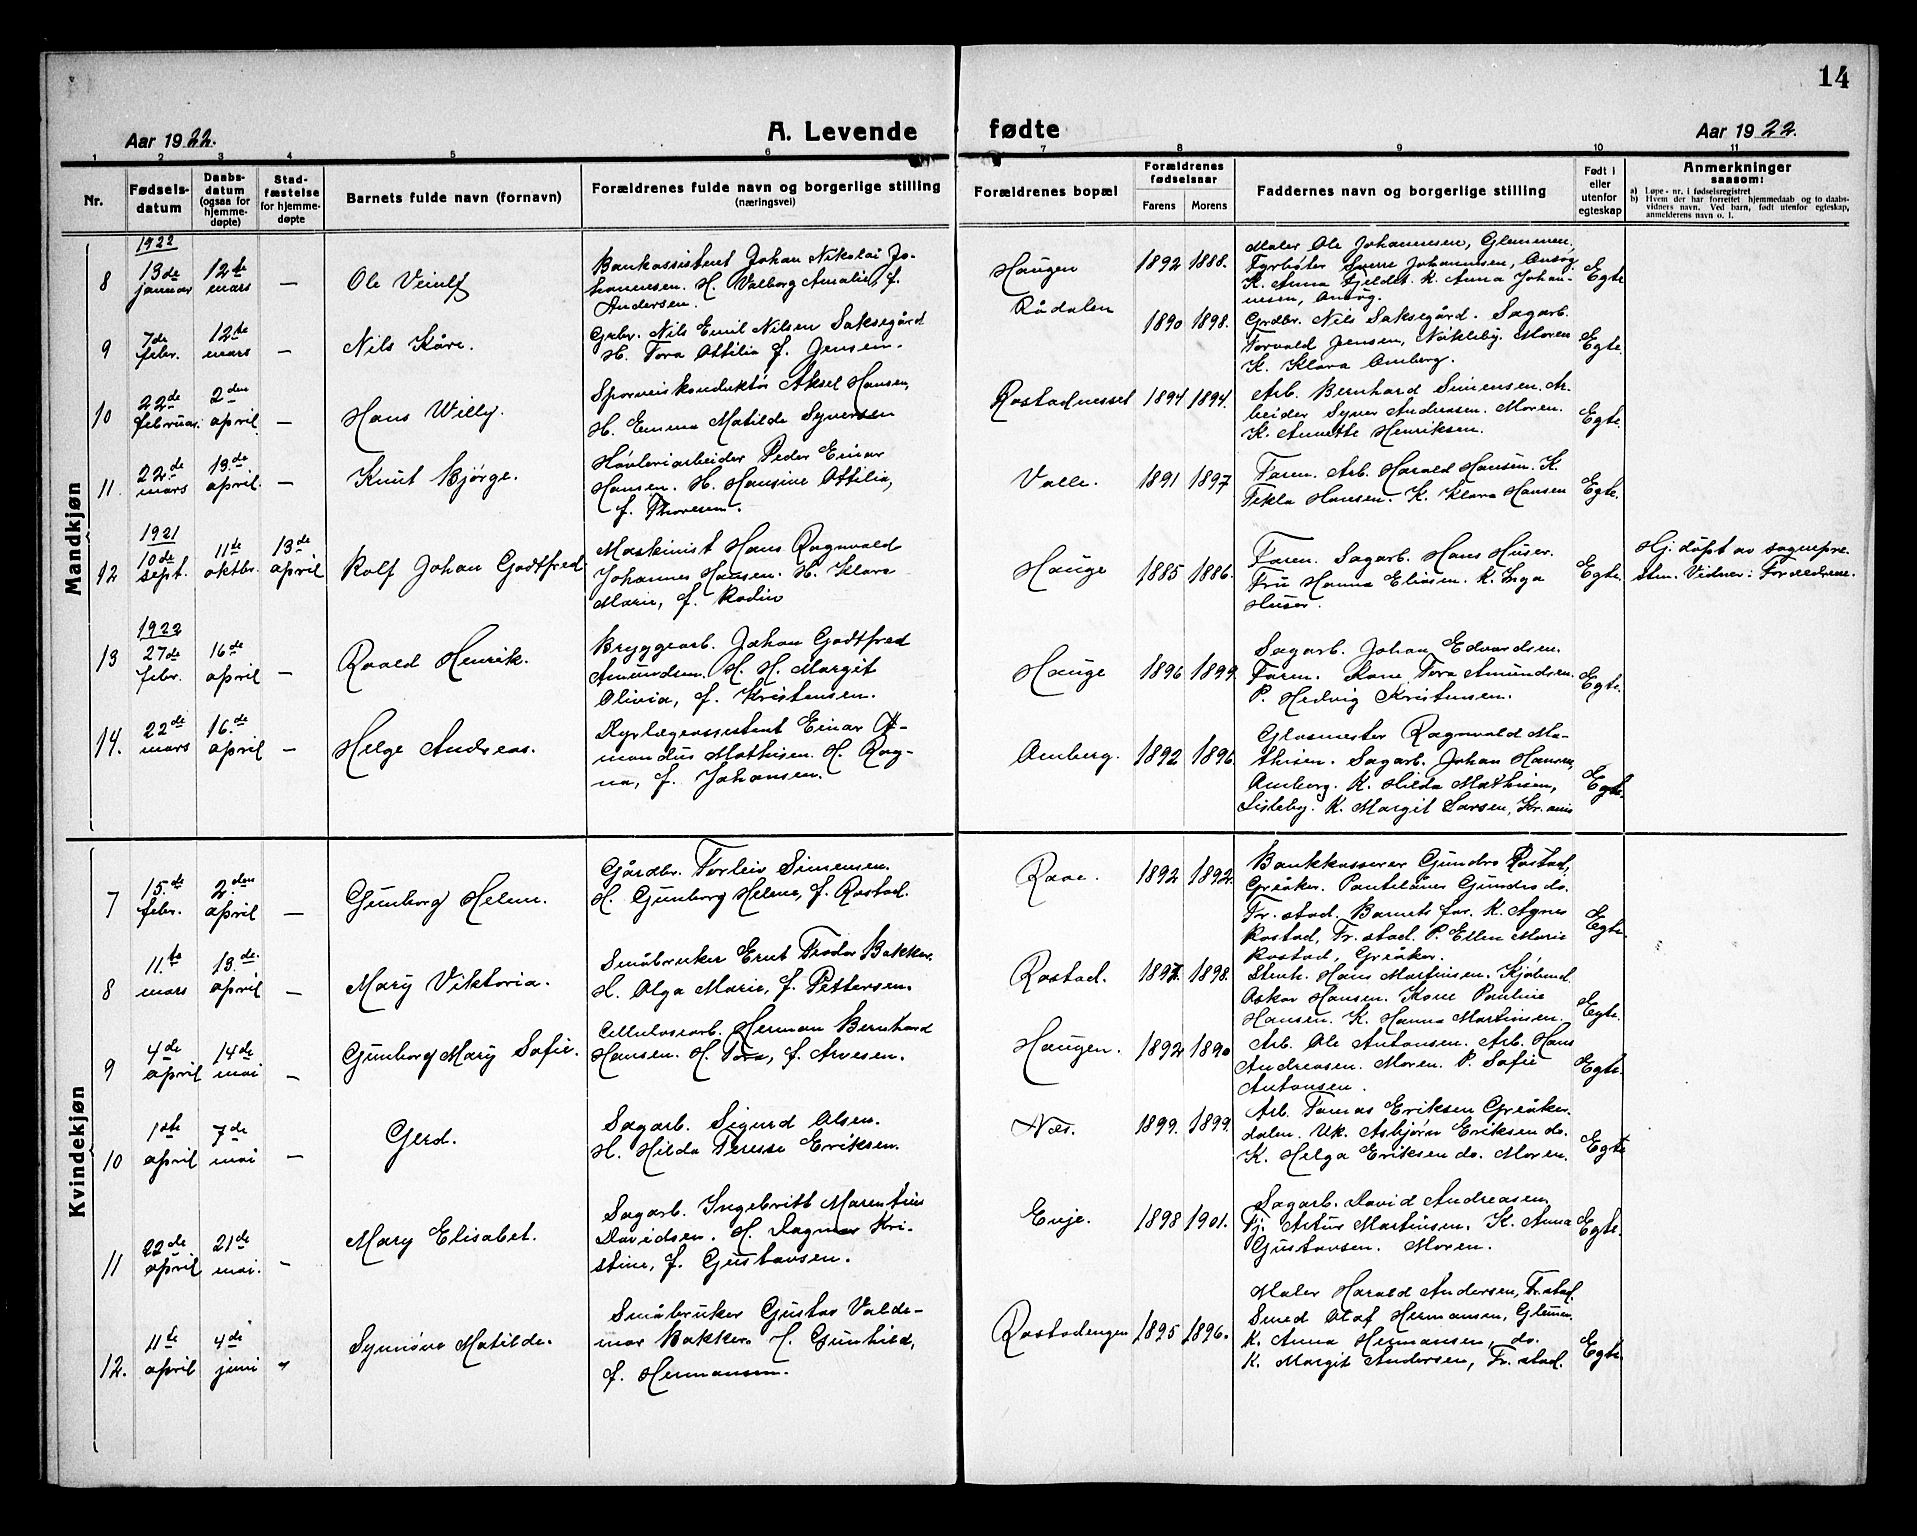 14
Aar 1922.
A. Levende
fødte
Aar 1922.
1 2 3 4 5 6 7 8 9 10 11
Nr.
Fødsels-
datum
Daabs-
datum
(ogsaa for
hjemme-
døpte)
Stad-
fæstelse
for hjemme-
døpte
Barnets fulde navn (fornavn)
Forældrenes fulde navn og borgerlige stilling
(næringsvei)
Forældrenes bopæl
Forældrenes
fødselsaar
Farens Morens
Faddernes navn og borgerlige stilling
Født i
eller
utenfor
egteskap
Anmerkninger
saasom:
a) Løpe-nr. i fødselsregistret
b) Hvem der har forrettet hjemmedaab og to daabs-
vidners navn. Ved barn, født utenfor egteskap,
anmelderens navn o. l.
Mandkjøn
1922
8 13de januar 12te mars — Ole Veiulf
Bankassistent Johan Nikolai Jo-
hannesen. H. Valborg Amalie, f.
Andersen.
Haugen
Rådalen
1892 1888.
Maler Ole Johannesen, Glemmen,
Fyrbøter Sverre Johannesen, Onsøy
K. Anna Fjeldet. K. Anna Johan-
nesen, Onsøy.
Egte
9 7de febr. 12te mars — Nils Kåre.
Grbr. Nils Emil Nilsen Saksegård
H. Tora Ottilia f. Jensen.
1890 1898.
Grdbr. Nils Saksegård. Sagarb.
Torvald Jensen, Nøkleby. Moren
K. Klara Omberg.
Egte.
10 22de februar 2den april. — Hans Willy.
Sporveiskonduktør Aksel Hansen,
H. Emma Matilde Syversen
Rostadnesset 1894 1894.
Arb. Bernhard Simensen. Ar-
beider Syver Andreasen. Moren.
K. Annette Henriksen.
Egte.
11. 22de mars 13.de april. — Knut Bjørge.
Høvleriarbeider Peder Einar
Hansen. H. Hansine Ottilia,
f. Thoresen.
Valle. 1891 1897
Faren. Arb. Harald Hansen. K.
Tekla Hansen. K. Klara Hansen
Egte.
1921
12 10de sept. 11te oktbr. 13de april Rolf Johan Godtfred
Maskinist Hans Ragnvald
Johannes Hansen. H. Klara
Marie, f. Rodin
Hauge 1885 1886.
Faren. Sagarb. Hans Huser.
Fru Hanna Eliasen. K. Inga
Huser.
Egte.
Hj. døpt av sognepre-
sten. Vidner: Forældrene.
1922
13 27de febr. 16de april — Roald Henrik.
Bryggearb. Johan Godtfred
Amundsen. H. H. Margit
Olivia, f. Kristensen.
Hauge 1896 1899.
Sagarb. Johan Edvardsen.
Faren. Kone Tora Amundsen.
P. Hedvig Kristensen.
Egte.
14. 22de mars 16.de april — Helge Andreas.
Dyrlægeassistent Einar A-
mandus Mathisen. H. Rag-
na, f. Johansen.
Omberg. 1892 1896.
Glasmester Ragnvald Ma-
thisen. Sagarb. Johan Hansen,
Omberg. K. Hilda Mathisen,
Lisleby. K. Margit Larsen, Kr.ania
Egte.
Kvindekjøn
7 15.de febr. 2.den april — Gunborg Helene.
Gårdbr. Torleiv Simensen.
H. Gunborg Helene, f. Rostad.
Raae. 1892 1892.
Bankkasserer Gundro Rostad,
Greåker. Gundro do.
Fr.stad. Barnets far. K. Agnes
Rostad, Fr.stad. P. Ellen Marie
Rostad, Greåker.
Egte.
8 11.te mars 13.de april — Mary Viktoria.
Småbruker Ernt Teodor Bakker.
H. Olga Marie, f. Pettersen.
Rostad. 1897. 1898.
Hans Martinsen.
Oskar Hansen. Kone Pauline
Hansen. K. Hanna Martinsen.
Egte.
9 4de april 14de mai — Gunborg Mary Sofie.
Cellulosearb. Herman Bernhard
Hansen. H. Tora, f. Arvesen.
Haugen. 1892 1890
Arb. Ole Antonsen. Arb. Hans
Andreasen. Moren. P. Sofie
Antonsen.
Egte.
10 1ste april 7de mai — Gerd.
Sagarb. Sigurd Olsen.
H. Hilda Terese Eriksen.
Næs. 1899. 1899.
Arb. Tomas Eriksen Greåker-
dalen. Uk. Asbjørn Eriksen do.
K. Helga Eriksen do. Moren.
Egte
11 22de april 21de mai. — Mary Elisabet.
Sagarb. Ingebritt Marentius
Davidsen. H. Dagmar Kri-
stine, f. Gustavsen.
Enje. 1898 1901.
Sagarb. David Andreasen,
Tj. Artur Martinsen. K. Anna
Gustavsen. Moren.
Egte.
12. 11te april 4de juni Synnøve Matilde.
Småbruker Gustav Valde-
mar Bakker. H. Gunhild,
f. Hermansen.
Rostadengen 1895 1896.
Maler Harald Andersen, Fr.stad.
Smed Olaf Hermansen, Glemmen.
K. Anna Hermansen, do.
K. Margit Andersen, Fr.stad.
Egte.